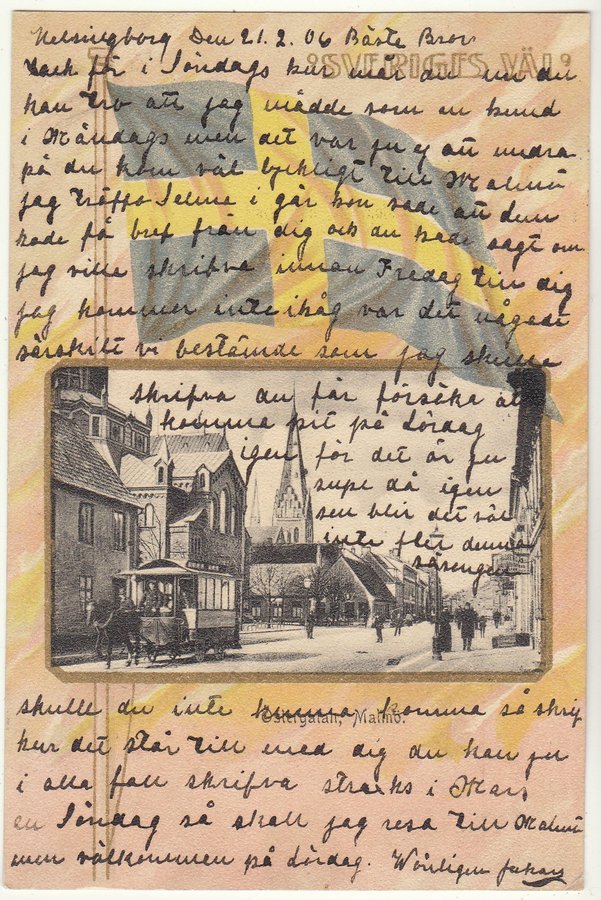 Helsingborg Den 21.2.06 Bäste Bror
"SVERIGES VÄL"
Tack för i Söndags hur mår du nu du
kan tro att jag mådde som en hund
i Måndags men det var ju ej att undra
på du kom väl lyckligt till Malmö
jag träffa Selma i går hon sade att dem
hade få bref från dig och du hade sagt om
jag ville skrifva innan Fredag till dig
jag kommer inte ihåg var det någodt
särskilt vi bestämde som jag skulle
skrifva du får försöka at
komma hit på Lördag
igen för det är ju
supe då igen
sen blir det väl
inte flit denna
skulle du inte komma komma så skrif
Östergatan, Malmö.
hur det står till med dig du kan ju
i alla fall skrifva straks i Mars
en Söndag så skall jag resa till Malmö
men välkommen på Lördag. Vänligen